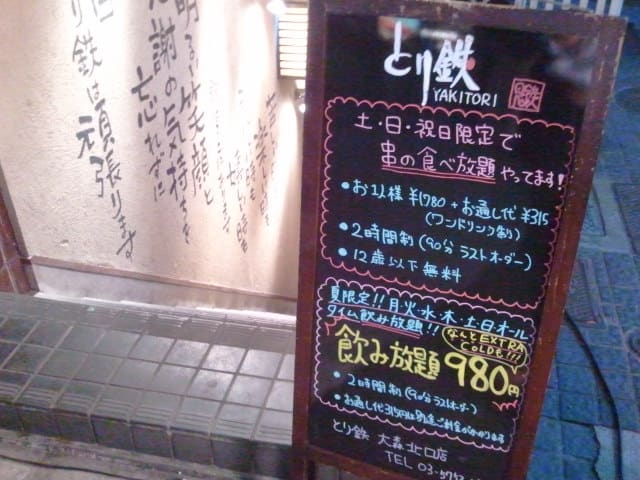 り鉄は頑張ります
感謝の気持ちを
忘れずに
明るい笑顔と
とり鉄
YAKITORI
土・日・祝日限定で
串の食べ放題 やってます!
・お1人様 ¥1780 + お通し代 ¥315
(ワンドリンク制)
・2時間制(90分 ラストオーダー)
・12歳以下無料
夏限定!! 月・火・水・木・土・日オール
タイム飲み放題!!
なんとEXTRA
COLDも!!!
飲み放題 980円
・2時間制(90分 ラストオーダー)
・お通し代315円は別途ご料金がかかります
とり鉄 大森北口店
TEL 03-5753